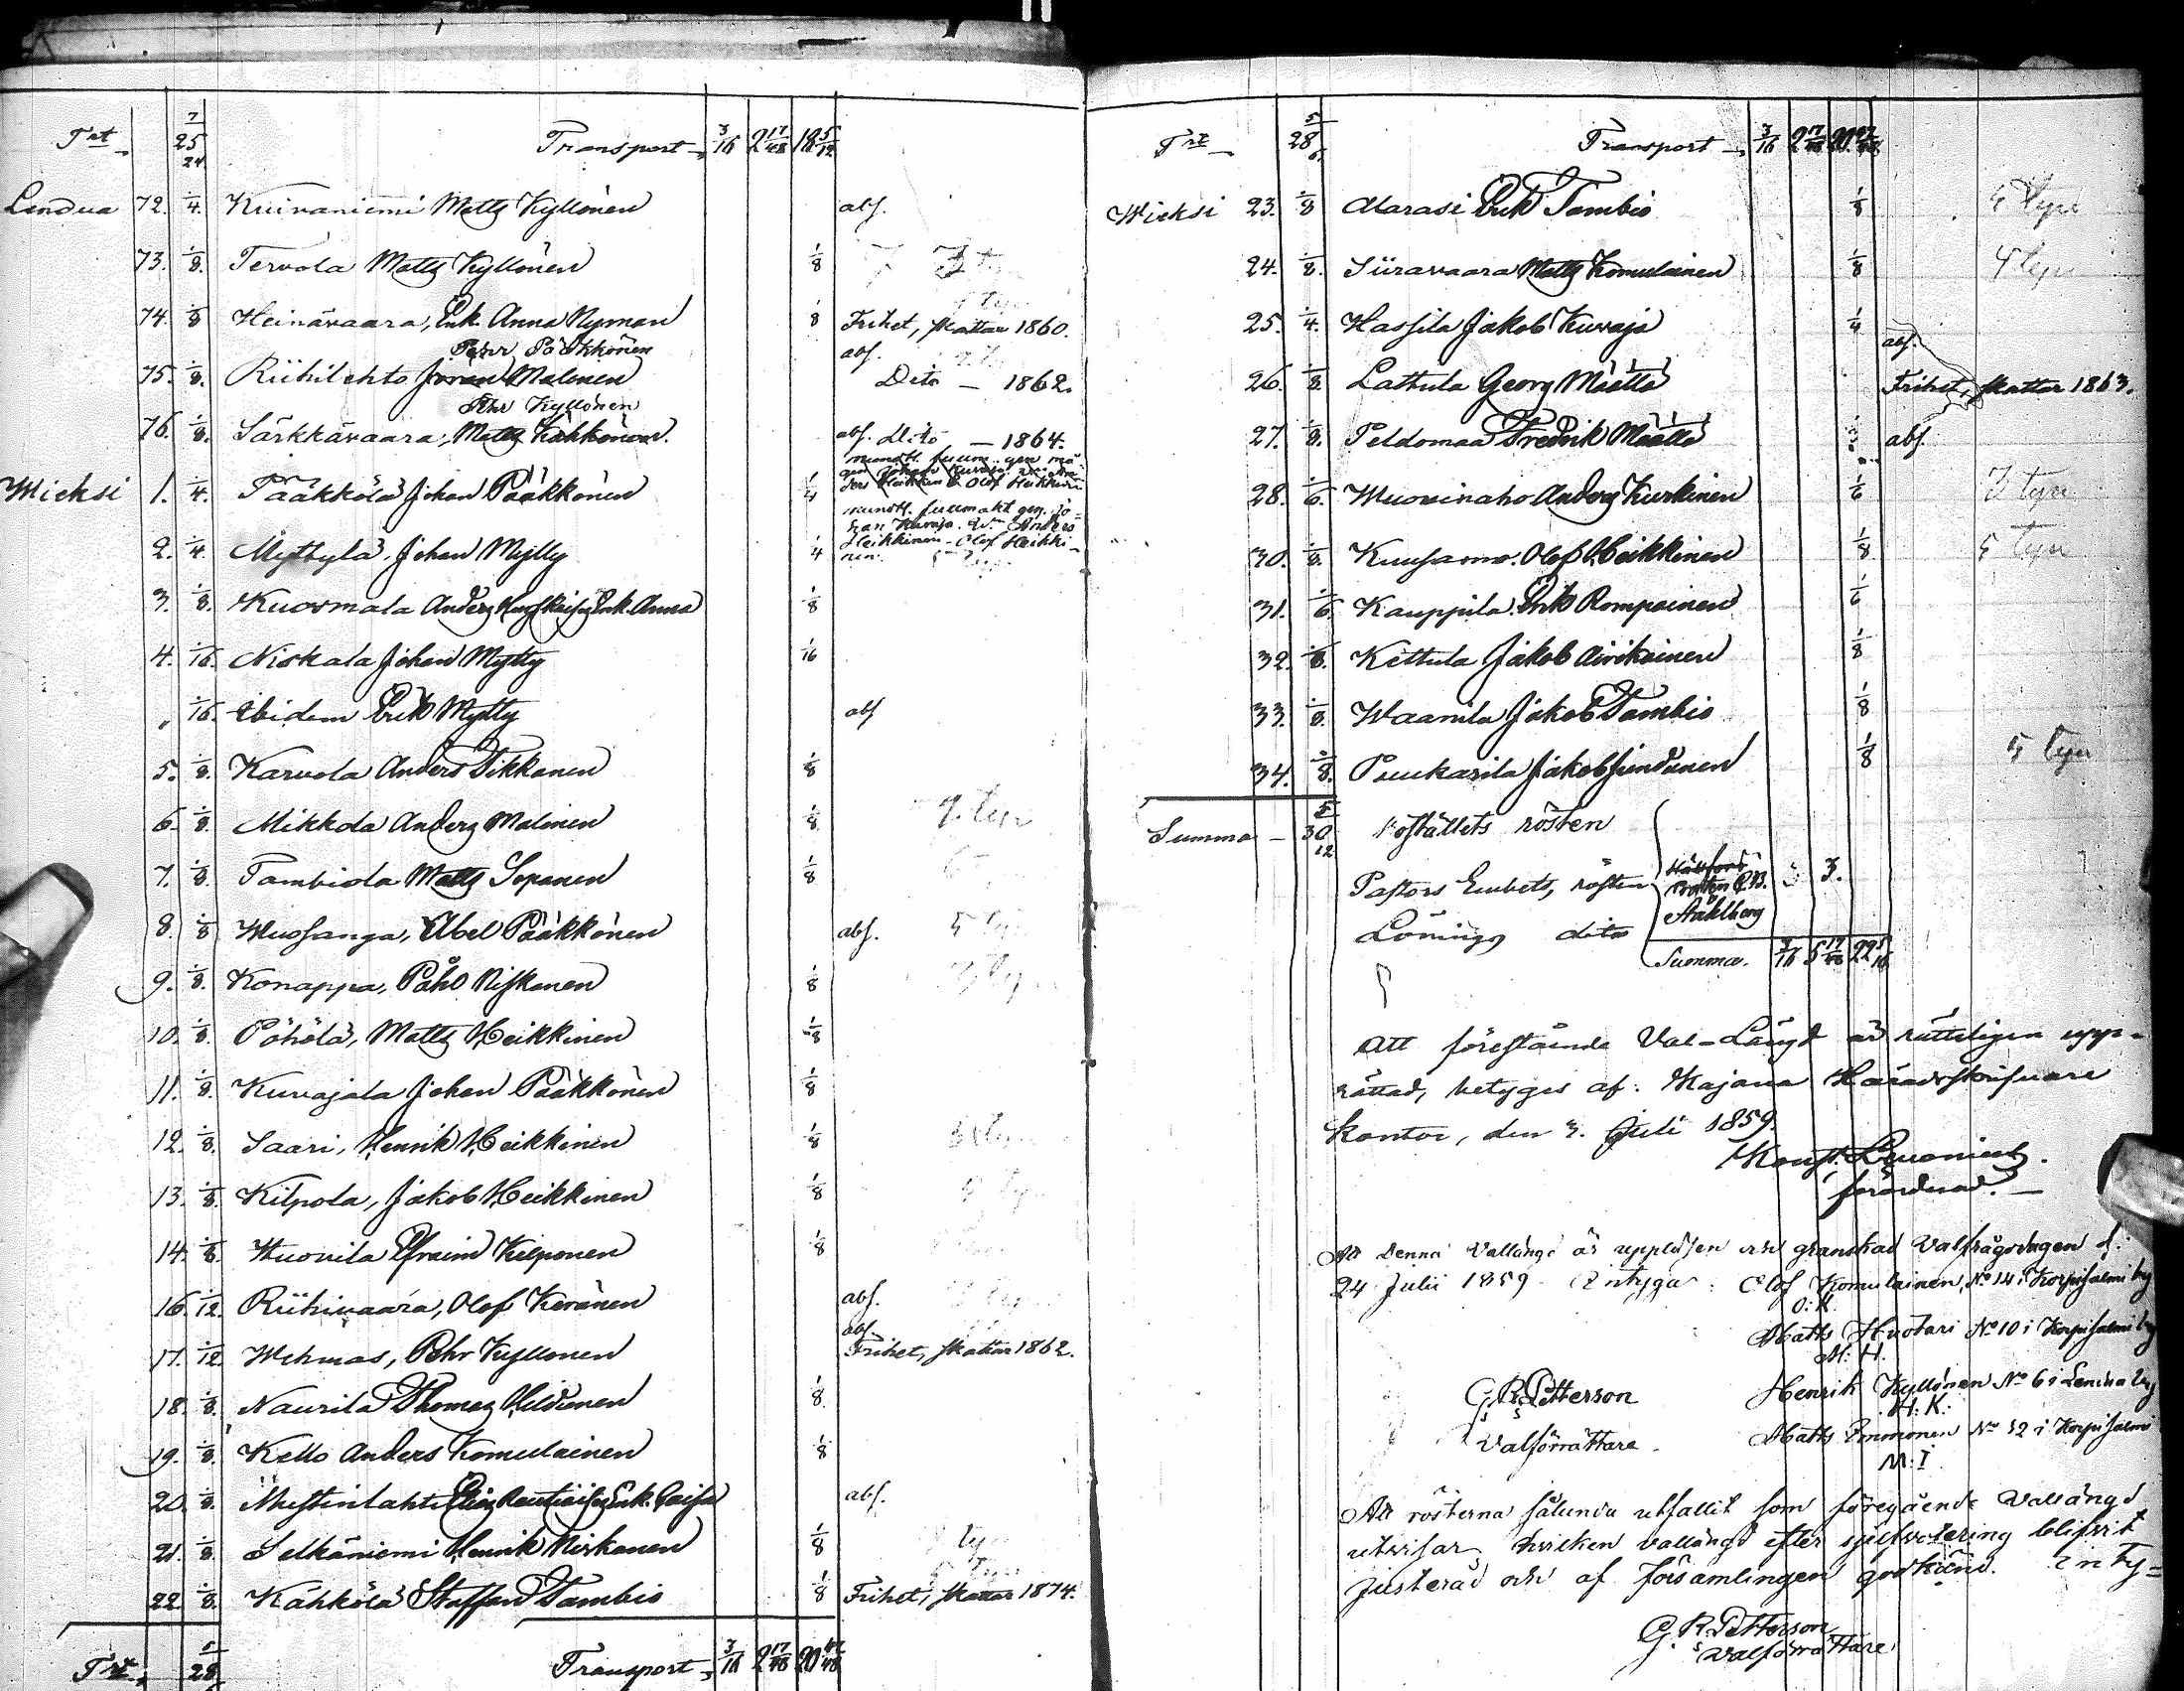 Trt 7/25/24 Transport 3/16 2 17/48 18 5/12
Lendua 72. 1/4. Kuivaniemi Matts Kyllönen abs.
73. 1/8. Tervola Matts Kyllönen 1/8
74. 1/8 Heinävaara, Enk. Anna Nyman 1/8 Frihet, skattar 1860.
Pehr Pääkkönen abs.
75. 1/8. Riihilehto Malinen Dito — 1862.
Pehr Kyllönen
76. 1/8. Särkkävaara, Matts Kähkönen. abs. Dito — 1864.
Wieksi 1. 1/4. Pääkkölä Johan Pääkkönen 1/4
2. 1/4. Myttylä, Johan Mylly 1/4
3. 1/8. Kuosmala Anders Enk. Anna 1/8
4. 1/16. Niskala Johan Mytty 1/16
" 1/16. Ibidem Erik Mytty abs
5. 1/8. Karvola Anders Tikkanen 1/8
6. 1/8. Mikkola Anders Malinen 1/8
7. 1/8. Tambiola Matts Sopanen 1/8
8. 1/8 Wuosanga, Abel Pääkkönen abs.
9. 1/8. Konappa, Påhl Niskanen 1/8
10. 1/8. Pöhölä, Matts Heikkinen 1/8
11. 1/8. Kuvajala Johan Pääkkönen 1/8
12. 1/8. Saari, Henrik Heikkinen 1/8
13. 1/8. Kilpola, Jakob Heikkinen 1/8
14. 1/8. Huovila Efraim Kilponen 1/8
16. 1/12 Riihivaara, Olof Keränen abs.
abs.
17. 1/12 Wehmas, Pehr Kyllönen Frihet, skattar 1862.
18. 1/8. Naurila Thomas Heldunen 1/8
19. 1/8. Kello Anders Komulainen 1/8
20. 1/8. Mustinlahti Enk. Caisa abs.
21. 1/8 Selkäniemi Henrik Niskanen 1/8
22. 1/8. Kähkölä Staffan Tambio 1/8 Frihet, skattar 1874.
Trt. 5/28 Transport 3/16 2 17/48 20 47/48
Trt 5/28/6. Transport 3/16 2 17/48 20 47/48
Wieksi 23. 1/8 Alarasi Erik Tambio 1/8
24. 1/8. Siiravaara Matts Komulainen 1/8
25. 1/4. Hassila Jakob Kuvaja 1/4
abs.
26. 1/8. Lattula Georg Määttä Frihet, skattar 1863.
27. 1/8. Peldomaa Fredrik Määttä abs.
28. 1/6. Wuorinaho Anders Kurkinen 1/6
30. 1/8. Kuusamo. Olof Heikkinen 1/8
31. 1/6. Kauppila. Erik Rompainen 1/6
32. 1/8. Kettula Jakob Airikainen 1/8
33. 1/8. Waanila Jakob Tambio 1/8
34. 1/8. Puukarila Jakob Jundunen 1/8
Summa — 30 5/12 Boställets rösten
Pastors Embets, rösten Prosten Ståhlberg 3.
Lönings dito
Summa. 3/16 5 17/48 22 5/16
Att förestående Val-Längd är rätteligen upp-
rättad, betyges af: Kajana Häradsskrifvare
Kontor, den 3. Juli 1859.
förordnad. —
Att Denna Vallängd är uppläsen och granskad Valfrågsdagen d.
24 Julii 1859. Intyga: Olof Komulainen, No 14 i Korpisalmi by
O: K.
Matts Huotari No 10 i Korpisalmi by
M: H.
G R Petterson Henrik Kyllönen No 6 i Lendua by
H: K.
Valförrättare. Matts Immonen No 32 i Korpisalmi
M: I.
Att rösterna sålunda utfallit som föregående Vallängd
utvisar hvilken vallängd efter sjelfvotering blifvit
justerad och af församlingen godkänd. Inty-
G. R. Petterson
Valförrättare